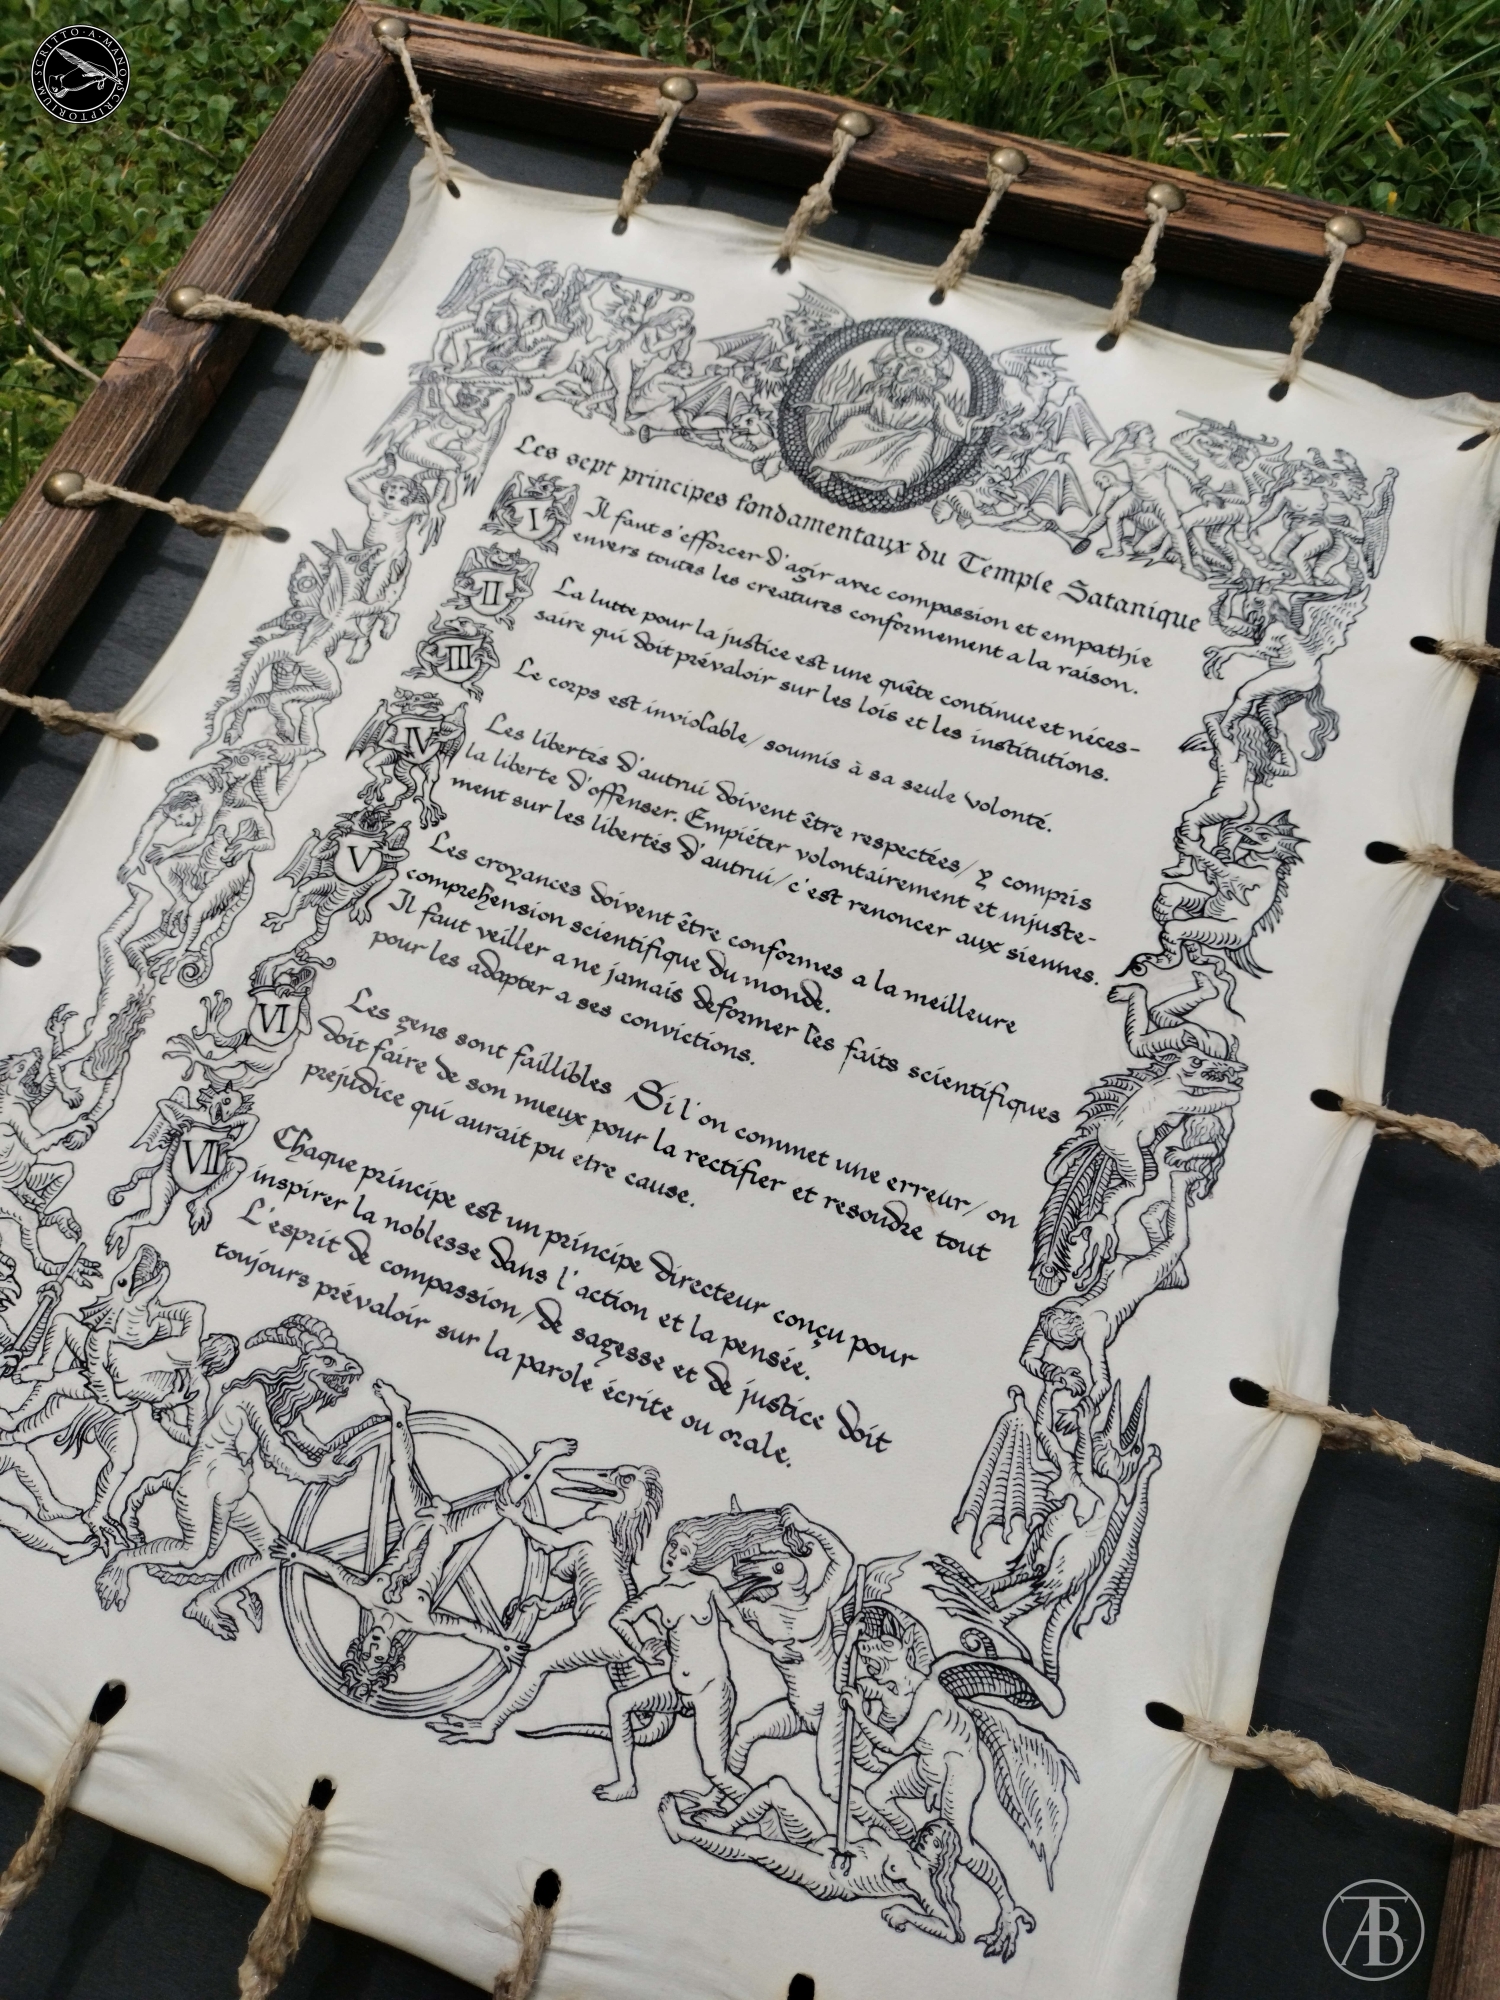 SCRITTO · A · MANO · SCRIPTORIUM ·
Les sept principes fondamentaux du Temple Satanique
I
Il faut s'efforcer d'agir avec compassion et empathie
envers toutes les creatures conformement a la raison.
II
La lutte pour la justice est une quête continue et néces-
saire qui doit prévaloir sur les lois et les institutions.
III
Le corps est inviolable/ soumis à sa seule volonté.
IV
Les libertés d'autrui doivent être respectées/ y compris
la liberte d'offenser. Empiéter volontairement et injuste-
ment sur les libertés d'autrui/ c'est renoncer aux siennes.
V
Les croyances doivent être conformes a la meilleure
comprehension scientifique du monde.
Il faut veiller a ne jamais deformer les faits scientifiques
pour les adapter a ses convictions.
VI
Les gens sont faillibles Si l'on commet une erreur/ on
doit faire de son mieux pour la rectifier et resoudre tout
prejudice qui aurait pu etre cause.
VII
Chaque principe est un principe directeur conçu pour
inspirer la noblesse dans l'action et la pensée.
L'esprit de compassion/ de sagesse et de justice doit
toujours prévaloir sur la parole écrite ou orale.
TAB